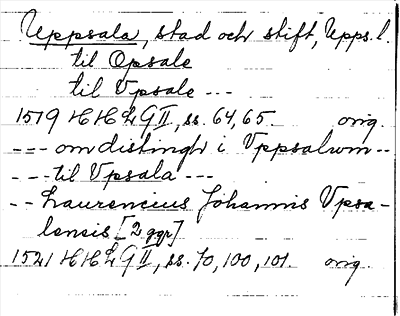 Uppsala, stad och stift, Upps. l.
til Opsale
til Vpsale ---
1519 HH L G II, ss. 64, 65. orig.
--- om distingh i Vppsalum --
--- til Vpsala ---
-- Laurencius Johannis Vpsa-
lensis [2 ggr]
1521 HH L G II, ss. 70, 100, 101. orig.